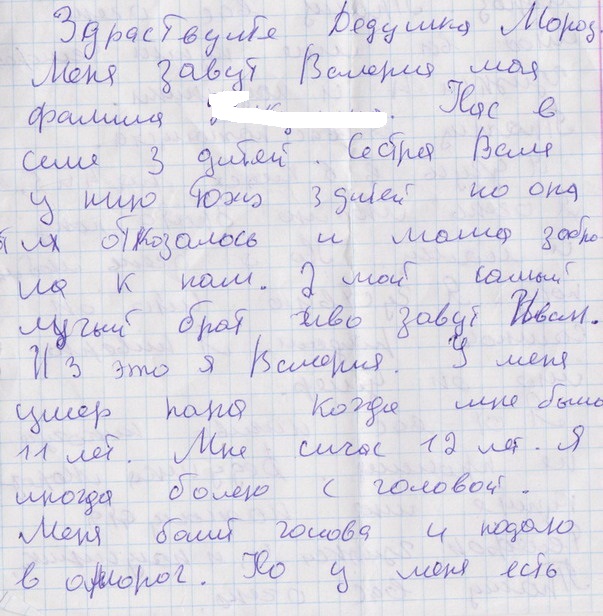 Здраствуите Дедушка Мороз.
Меня завут Валерия моя
фамилия. Нас в
семе 3 дитей. Сестра Валя
у нию тоже 3 дитей но она
от их отказалось и мама забра
ла к нам. 2 мой самый
лучый брат ево завут Иван.
И 3 это я Валерия. У меня
умер папа когда мне было
11 лет. Мне сичас 12 лет. Я
иногда болею с головой.
Меня болит голова и подаю
в оморог. Но у меня есть